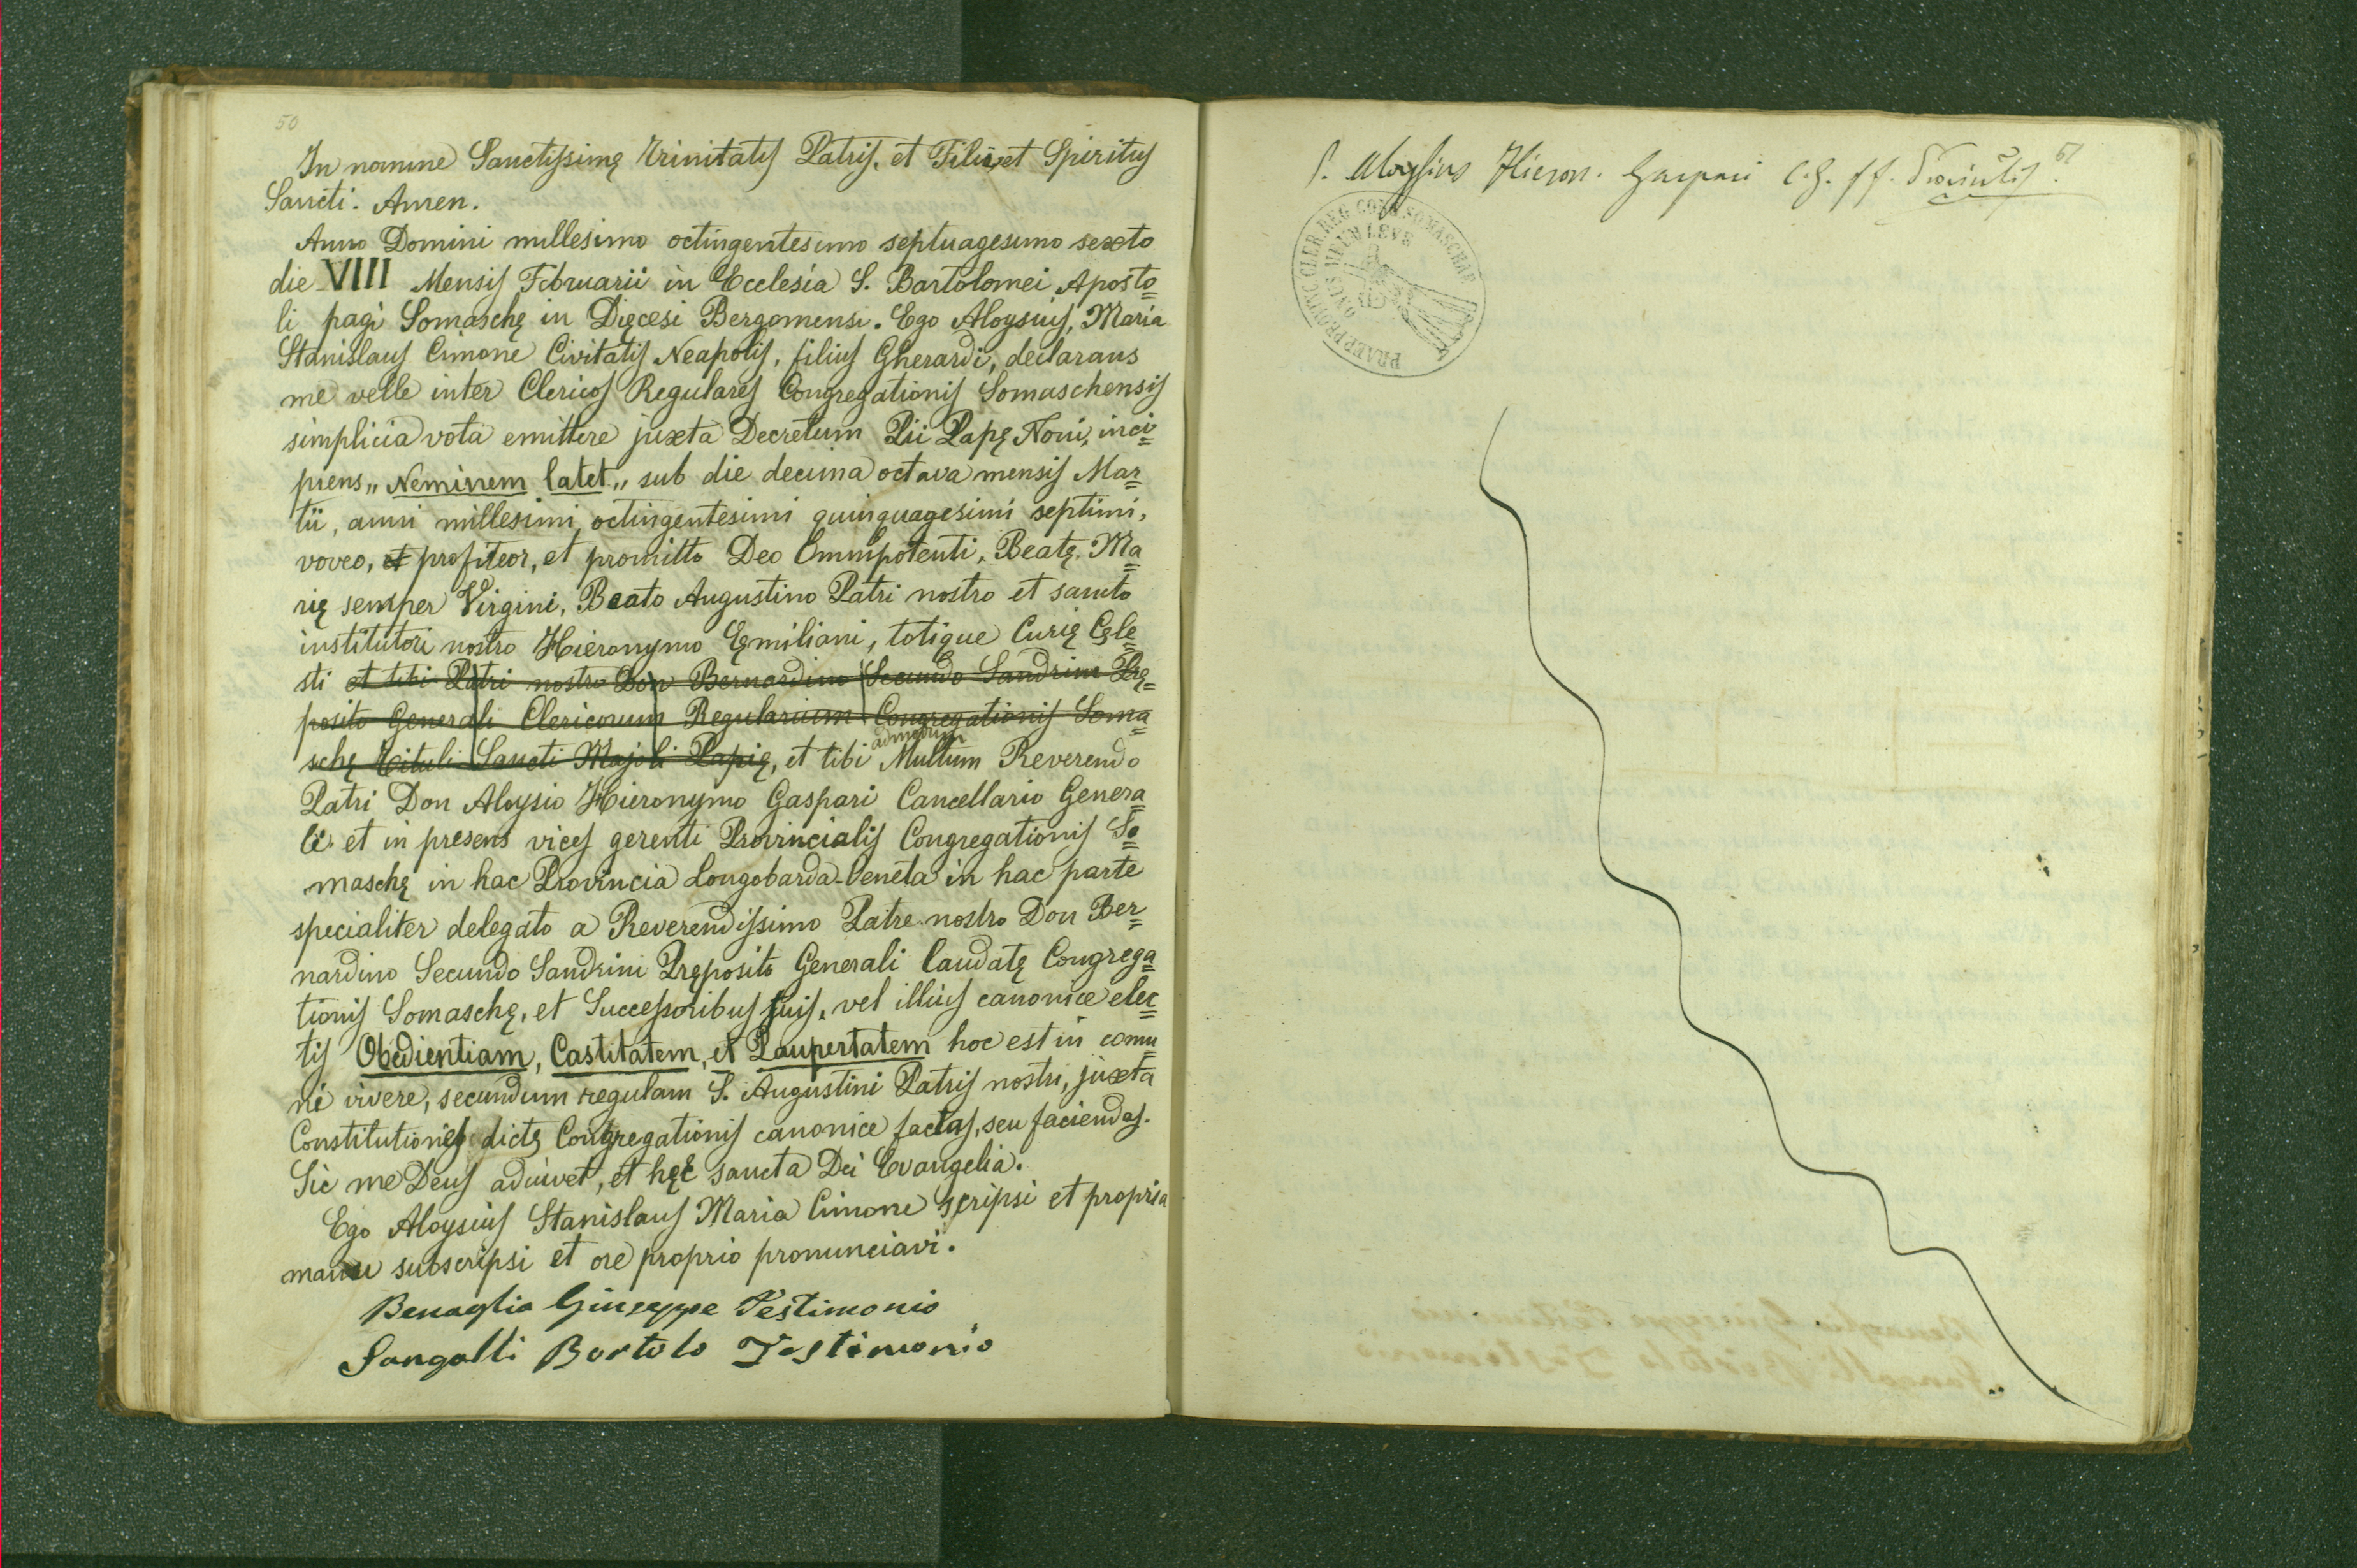 50
In nomine Sanctissimę Trinitatis Patris, et Filii, et Spiritus
Sancti. Amen.
Anno Domini millesimo octingentesimo septuagesimo sexto
die VIII Mensis Februarii in Ecclesia S. Bartolomei Aposto=
li pagi Somaschę in Dięcesi Bergomensi. Ego Aloysius, Maria
Stanislaus Cimone Civitatis Neapolis, filius Gherardi, declarans
me velle inter Clericos Regulares Congregationis Somaschensis
simplicia vota emittere juxta Decretum Pii Papę Noni, inci=
piens „Neminem latet„ sub die decima octava mensis Mar=
tii, anni millesimi octingentesimi quinquagesimi septimi,
voveo, et profiteor, et promitto Deo Omnipotenti, Beatę Ma=
rię semper Virgini, Beato Augustino Patri nostro et sancto
institutori nostro Hieronymo Ęmiliani, totique Curię Cęle=
sti et tibi Patri nostro Don Bernardino Secundo Sandrini Prę=
posito Generali Clericorum Regularium Congregationis Soma=
schę Tituli Sancti Majoli Papię, et tibi admodum Multum Reverendo
Patri Don Aloysio Hieronymo Gaspari Cancellario Genera=
li et in presens vices gerenti Provincialis Congregationis So=
maschę in hac Provincia Longobarda-Veneta in hac parte
specialiter delegato a Reverendissimo Patre nostro Don Ber=
nardino Secundo Sandrini Pręposito Generali laudatę Congrega=
tionis Somaschę, et Successoribus suis, vel illius canonice elec=
tis Obedientiam, Castitatem, et Paupertatem hoc est in comu=
ni vivere, secundum regulam S. Augustini Patris nostri, juxta
Constitutiones dictę Congregationis canonice factas, seu faciendas.
Sic me Deus adiuvet, et hęc sancta Dei Evangelia.
Ego Aloysius Stanislaus Maria Cimone scripsi et propria
manu subscripsi et ore proprio pronunciavi.
Benaglia Giuseppe Testimonio
Sangalli Bortolo Testimonio
51
P. Aloysius Hieron. Gaspari C.G. ff. Provinciᶫⁱˢ
PRAEP. PROVINC. CLER. REG. CONG. SOMASCHAE
ONUS MEUM LEVE